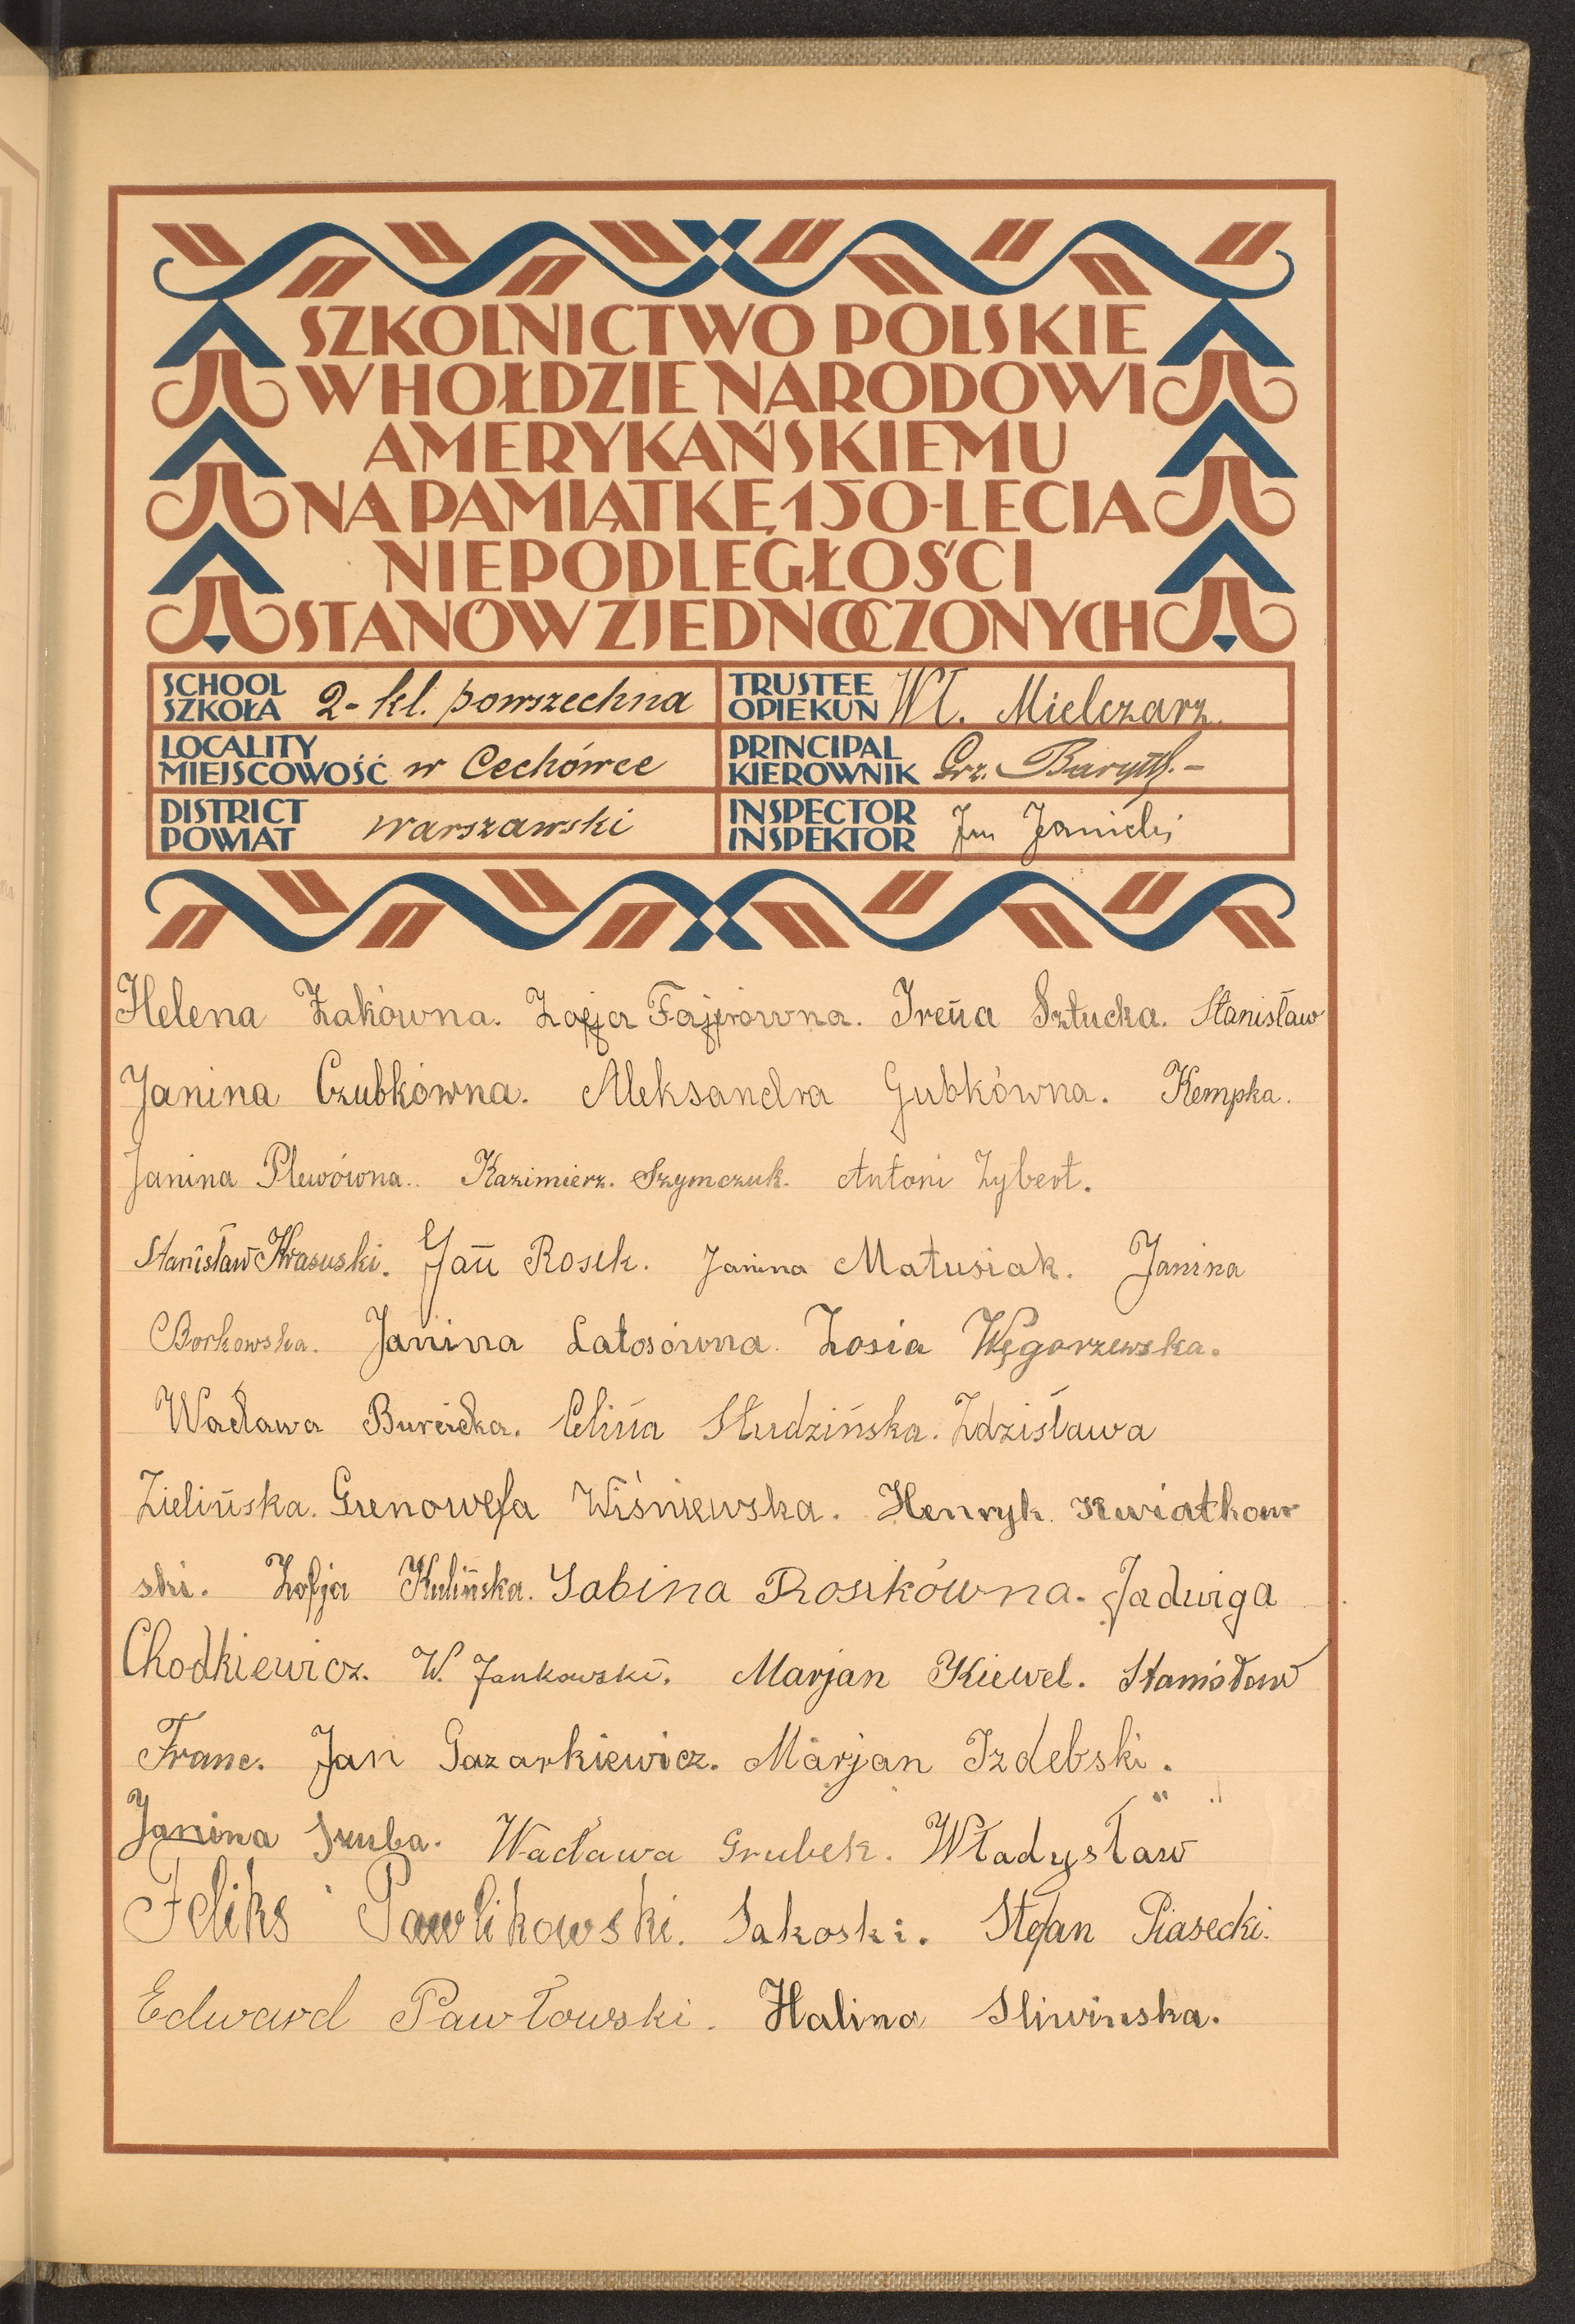 SZKOLNICTWO POLSKIE
W HOŁDZIE NARODOWI
AMERYKAŃSKIEMU
NA PAMIĄTKĘ 150-LECIA
NIEPODLEGŁOŚCI
STANÓW ZJEDNOCZONYCH
SCHOOL
SZKOŁA 2-kl. powszechna
TRUSTEE
OPIEKUN Wł. Mielczarz.
LOCALITY
MIEJSCOWOŚĆ w Cechówce
PRINCIPAL
KIEROWNIK Grz.
DISTRICT
POWIAT warszawski
INSPECTOR
INSPEKTOR Jan Janicki
Helena Żakówna. Zofja Fajfrówna. Irena Sztucka. Stanisław
Janina Czubkówna. Aleksandra Gubkówna. Kempka.
Janina Plewówna.. Kazimierz. Szymczuk. Antoni Zybert.
Stanisław Krasuski. Jan Rosik. Janina Matusiak. Janina
Borkowska. Janina Latosówna. Zosia Węgorzewska.
Wacława Burcicka. Celina Studzińska. Zdzisława
Zielińska. Genowefa Wiśniewska. Henryk Kwiatkow
ski. Zofja Kulińska. Sabina Rosikówna. Jadwiga
Chodkiewicz. W. Jankowski. Marjan Kiewel. Stanisław
Franc. Jan Gazarkiewicz. Marjan Izdebski.
Janina Szuba. Wacława Grubek. Władysław
Feliks Pawlikowski. Sakoski. Stefan Piasecki.
Edward Pawłowski. Halina Sliwinska.